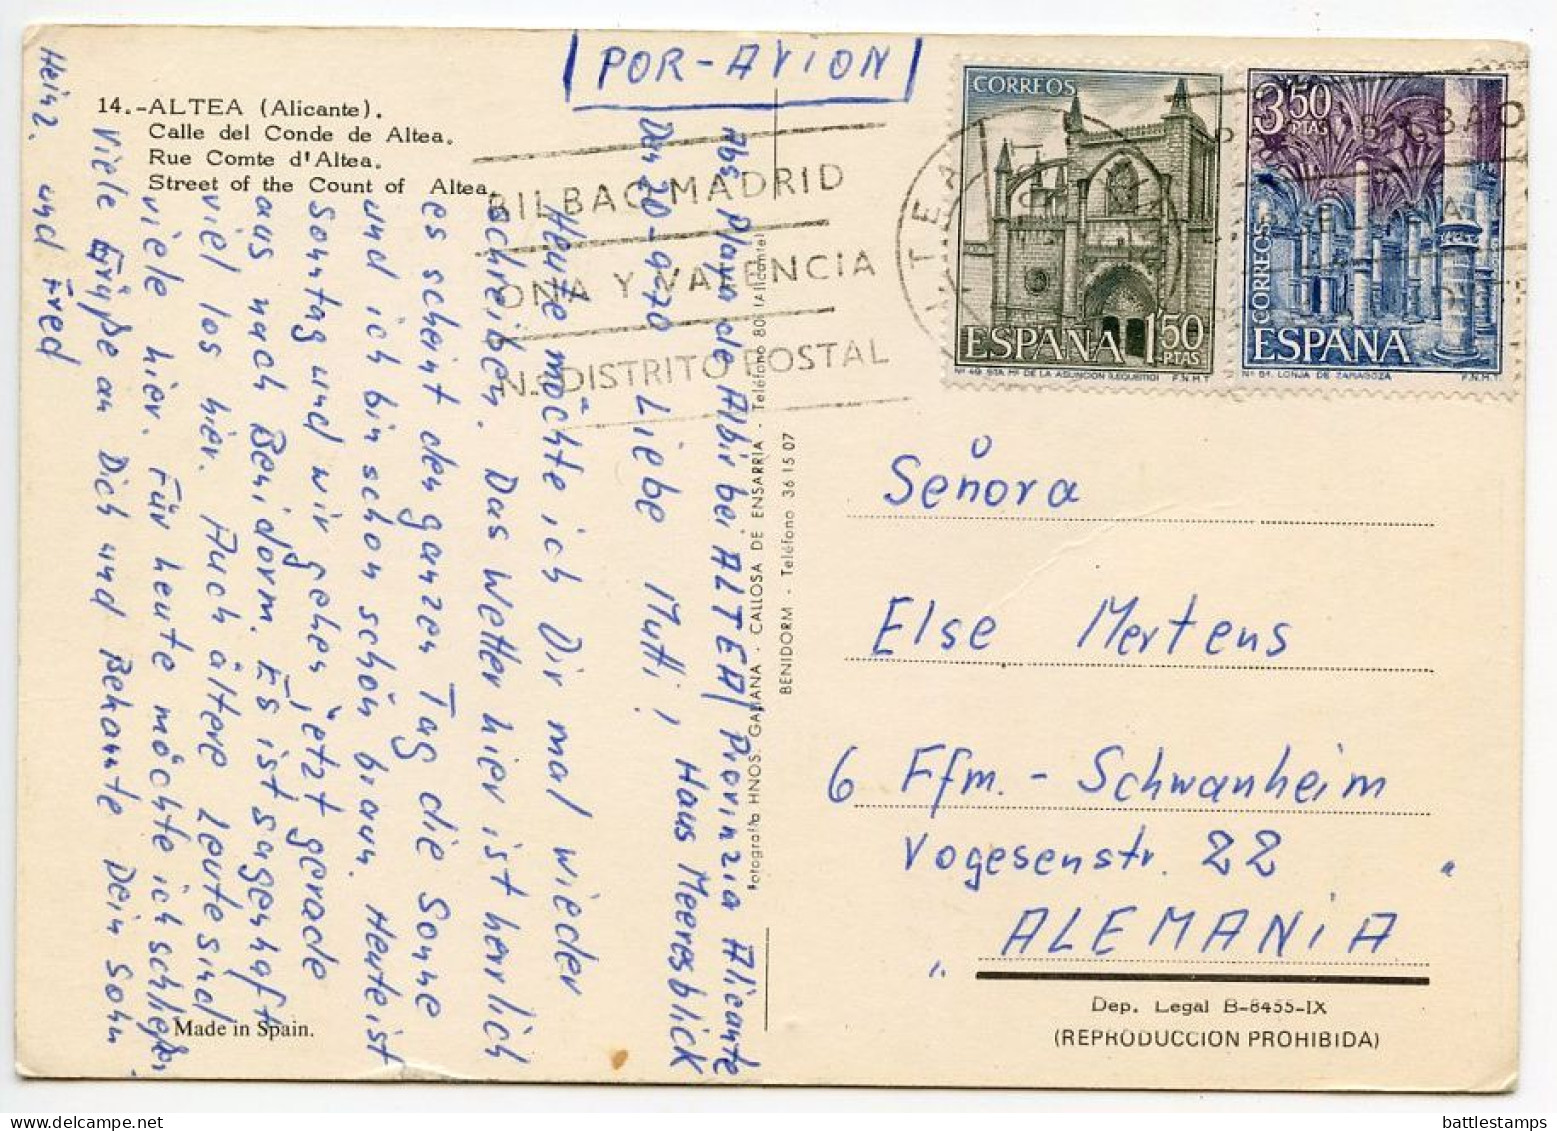 POR-AVION
14.-ALTEA (Alicante).
Calle del Conde de Altea.
Rue Comte d'Altea.
Street of the Count of Altea.
Abs Playa de Albir bei ALTEA/ Provinzia Alicante
Haus Meeresblick
Den 20-9-70 Liebe Mutti,
Heute möchte ich Dir mal wieder
schreiben. Das Wetter hier ist herrlich
es scheint den ganzen Tag die Sonne
und ich bin schon schön braun. Heute ist
Sonntag und wir gehen jetzt gerade
aus nach Benidorm. Es ist sagenhaft
viel los hier. Auch ältere Leute sind
viele hier. Für heute möchte ich schließen
Viele Grüße an Dich und Bekannte Dein Sohn
Heinz. und Fred
Made in Spain.
Fotografía HNOS. GABANA - CALLOSA DE ENSARRIA - Teléfono 80 (Alicante)
BENIDORM - Teléfono 36 15 07
BILBAO MADRID
ONA Y VALENCIA
N.º DISTRITO POSTAL
ALTEA
CORREOS
ESPAÑA 1'50 PTAS
Nº 49. STA. Mª DE LA ASUNCION (LEQUEITIO) F.N.M.T.
3'50 PTAS
CORREOS
ESPAÑA
Nº 51. LONJA DE ZARAGOZA F.N.M.T.
Señora
Else Mertens
6 Ffm. - Schwanheim
Vogesenstr. 22
" ALEMANiA "
Dep. Legal B-8455-IX
(REPRODUCCION PROHIBIDA)
battlestamps